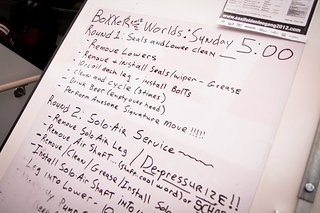 www.saalfeldenleogang2012.com
BoXXeR Worlds: Sunday 5:00
Round 1: Seals and Lower clean
- Remove Lowers
- Remove + install seals/wiper - Grease
- 10cc oil each leg - install Bolts
- Clean and cycle (3 times)
- Drink Beer (empty over head)
- Perform Awesome Signature Move !!!!!
Round 2: Solo Air Service
- Remove Solo Air Leg / Depressurize!!
- Remove Air Shaft... (shaft, cool word) or SCHA
- Remove/Clean/Grease/Install Solo
- Install Solo Air Shaft into
Leg into Lower -